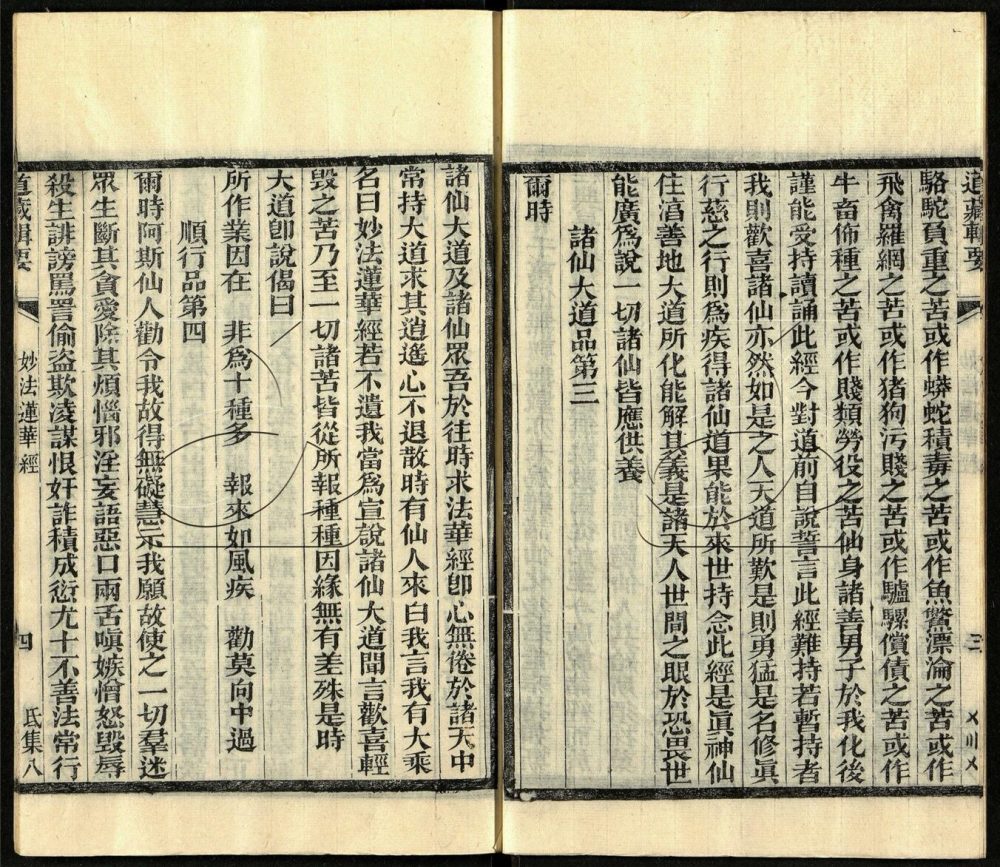 道藏輯要
三
〤〣〤
駱駝負重之苦或作蟒蛇積毒之苦或作魚鱉漂淪之苦或作
飛禽羅網之苦或作猪狗污賤之苦或作驢騾償債之苦或作
牛畜佈種之苦或作賤類勞役之苦仙身諸善男子於我化後
謹能受持讀誦此經今對道前自說誓言此經難持若暫持者
我則歡喜諸仙亦然如是之人天道所歎是則勇猛是名修眞
行慈之行則爲疾得諸仙道果能於來世持念此經是眞神仙
住滀善地大道所化能解其義是諸天人世間之眼於恐畏世
能廣爲說一切諸仙皆應供養
諸仙大道品第三
爾時
諸仙大道及諸仙眾吾於往時求法華經卽心無倦於諸天中
常持大道求其逍遙心不退散時有仙人來白我言我有大乘
名曰妙法蓮華經若不遺我當爲宣說諸仙大道聞言歡喜輕
毀之苦乃至一切諸苦皆從所報種種因緣無有差殊是時
大道卽說偈曰
所作業因在 非爲十種多 報來如風疾 勸莫向中過
順行品第四
爾時阿斯仙人勸令我故得無礙慧示我願故使之一切羣迷
眾生斷其貪愛除其煩惱邪淫妄語惡口兩舌嗔嫉憎怒毀辱
殺生誹謗罵詈偷盜欺淩謀恨奸詐積成愆尤十不善法常行
道藏輯要
妙法蓮華經
四
氐集八